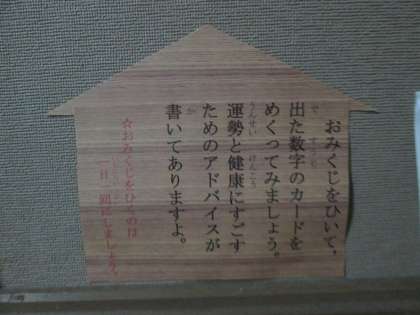 おみくじをひいて、
出た数字のカードを
めくってみましょう。
運勢と健康にすごす
ためのアドバイスが
書いてありますよ。
☆おみくじをひくのは
一日一回にしましょう。